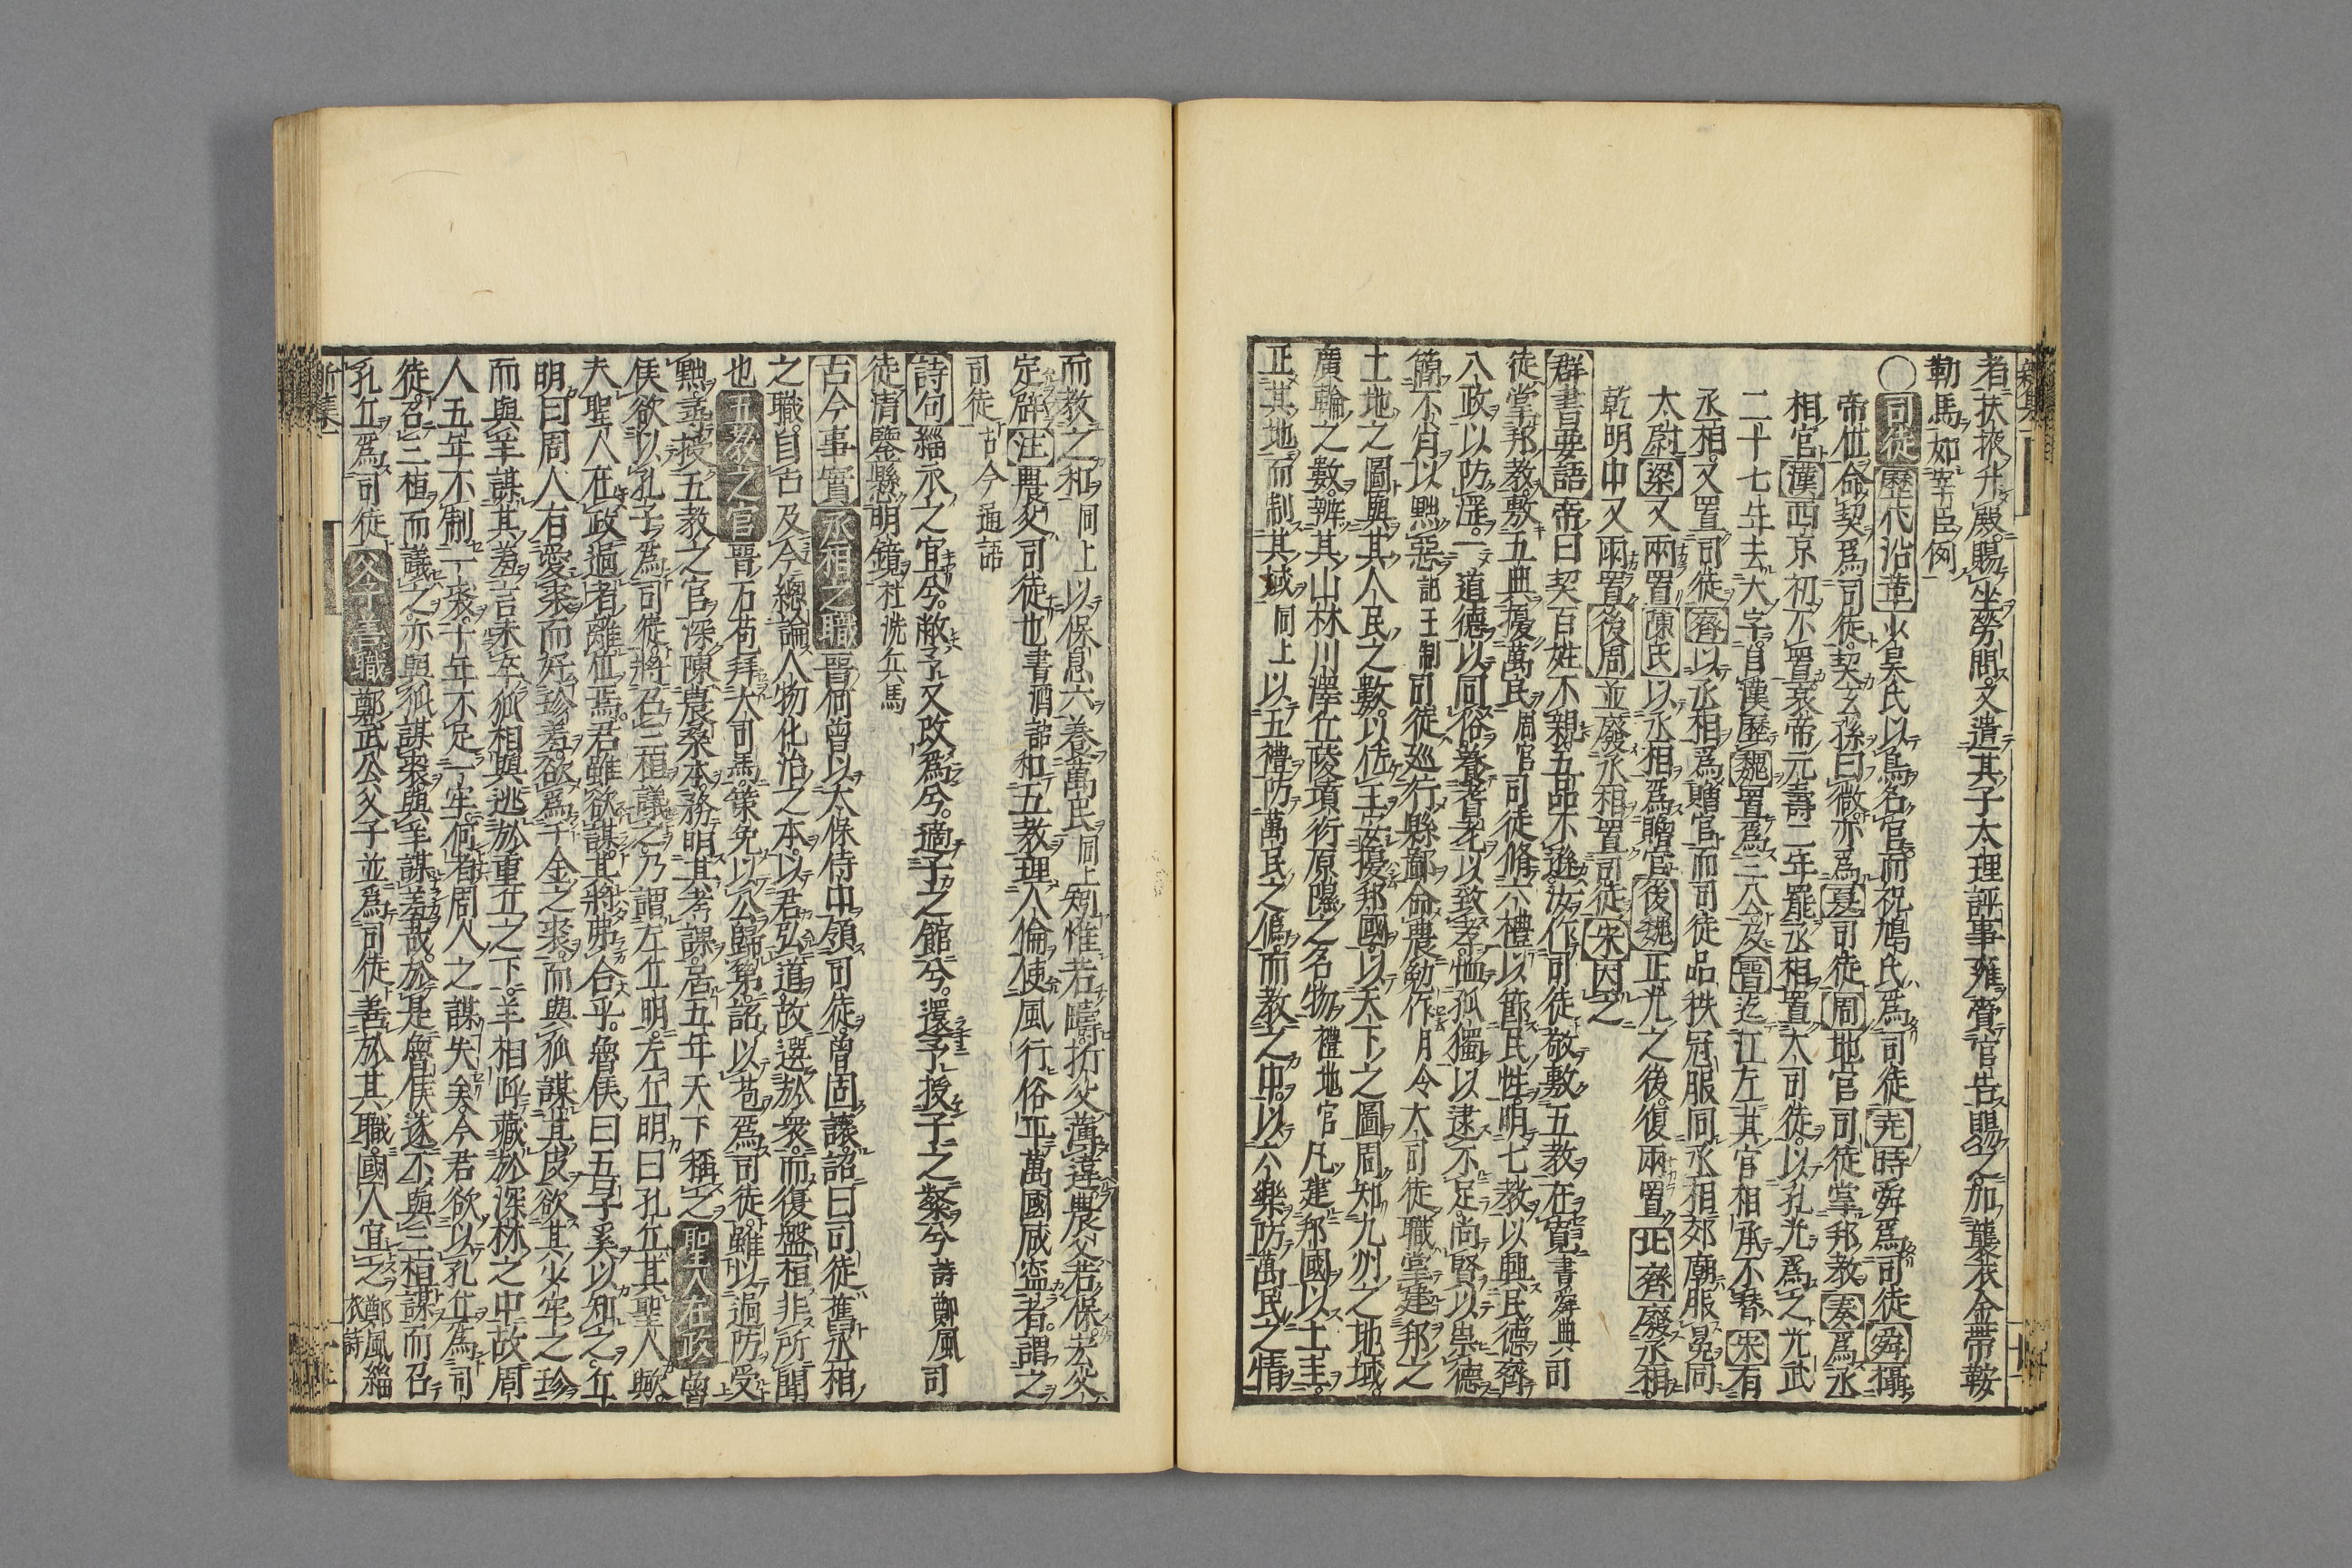 者扶掖升殿賜坐勞問又遣其子太理評事雍賫官告賜之加襲衣金帶鞍
勒馬如宰臣例
○司徒歷代沿革少昊氏以鳥名官而祝鳩氏爲司徒堯時舜爲司徒舜攝
帝位命契爲司徒契玄孫曰微亦爲夏司徒周地官司徒掌邦教秦爲丞
相官漢西京初不置哀帝元壽二年罷丞相置大司徒以孔光爲之光武
二十七年去大字自漢歷魏置爲三公及晉迄江左其官相承不替宋有
丞相又置司徒齊以丞相爲贈官而司徒品秩冠服同丞相郊廟服冕同
太尉梁又兩置陳氏以丞相爲贈官後魏正光之後復兩置北齊廢丞相
乾明中又兩置後周並廢丞相置司徒宋因之
群書要語帝曰契百姓不親五品不遜汝作司徒敬敷五教在寬書舜典司
徒掌邦教敷五典擾萬民周官司徒脩六禮以節民性明七教以興民德齊
八政以防淫一道德以同俗養耆老以致孝恤孤獨以逮不足尚賢以崇德
簡不肖以黜惡記王制司徒廵行縣鄙命農勉作月令大司徒職掌建邦之
土地之圖與其人民之數以佐王安擾邦國以天下之圖周知九州之地域
廣輪之數辨其山林川澤丘陵墳衍原隰之名物禮地官凡建邦國以土圭
正其地而制其域同上以五禮防萬民之僞而教之中以六樂防萬民之情
而教之和同上以保息六養萬民同上矧惟若疇圻父薄違農父若保宏父
定辟注農父司徒也書酒誥和五教理人倫使風行俗平萬國咸盗者謂之
司徒古今通語
詩句緇衣之宜兮敝予又改爲兮適子之館兮還予授子之粲兮詩鄭風司
徒清鑒懸明鏡杜洗兵馬
古今事實丞相之職晉何曾以太保侍中領司徒曾固讓詔曰司徒舊丞相
之職自古及今總論人物化治之本以君弘道故選於衆而復盤桓非所聞
也五教之官晉石苞拜大司馬策免以公歸第詔以苞爲司徒雖以過防受
黜導掞五教之官深陳農桑本務明其考課居五年天下稱之聖人在政魯
侯欲以孔子爲司徒將召三桓議之乃謂左丘明左丘明曰孔丘其聖人歟
夫聖人在政過者離位焉君雖欲謀其將弗合乎魯侯曰吾子奚以知之丘
明曰周人有愛裘而好珍羞欲爲千金之裘而與狐謀其皮欲其少牢之珍
而與羊謀其羞言未卒狐相與逃於重丘之下羊相呼藏於深林之中故周
人五年不制一裘十年不足一牢何者周人之謀失矣今君欲以孔丘爲司
徒召三桓而議之亦與狐謀裘與羊謀羞哉於是魯侯遂不與三桓謀而召
孔丘爲司徒父子善職鄭武公父子並爲司徒善於其職國人宜之鄭風緇衣詩